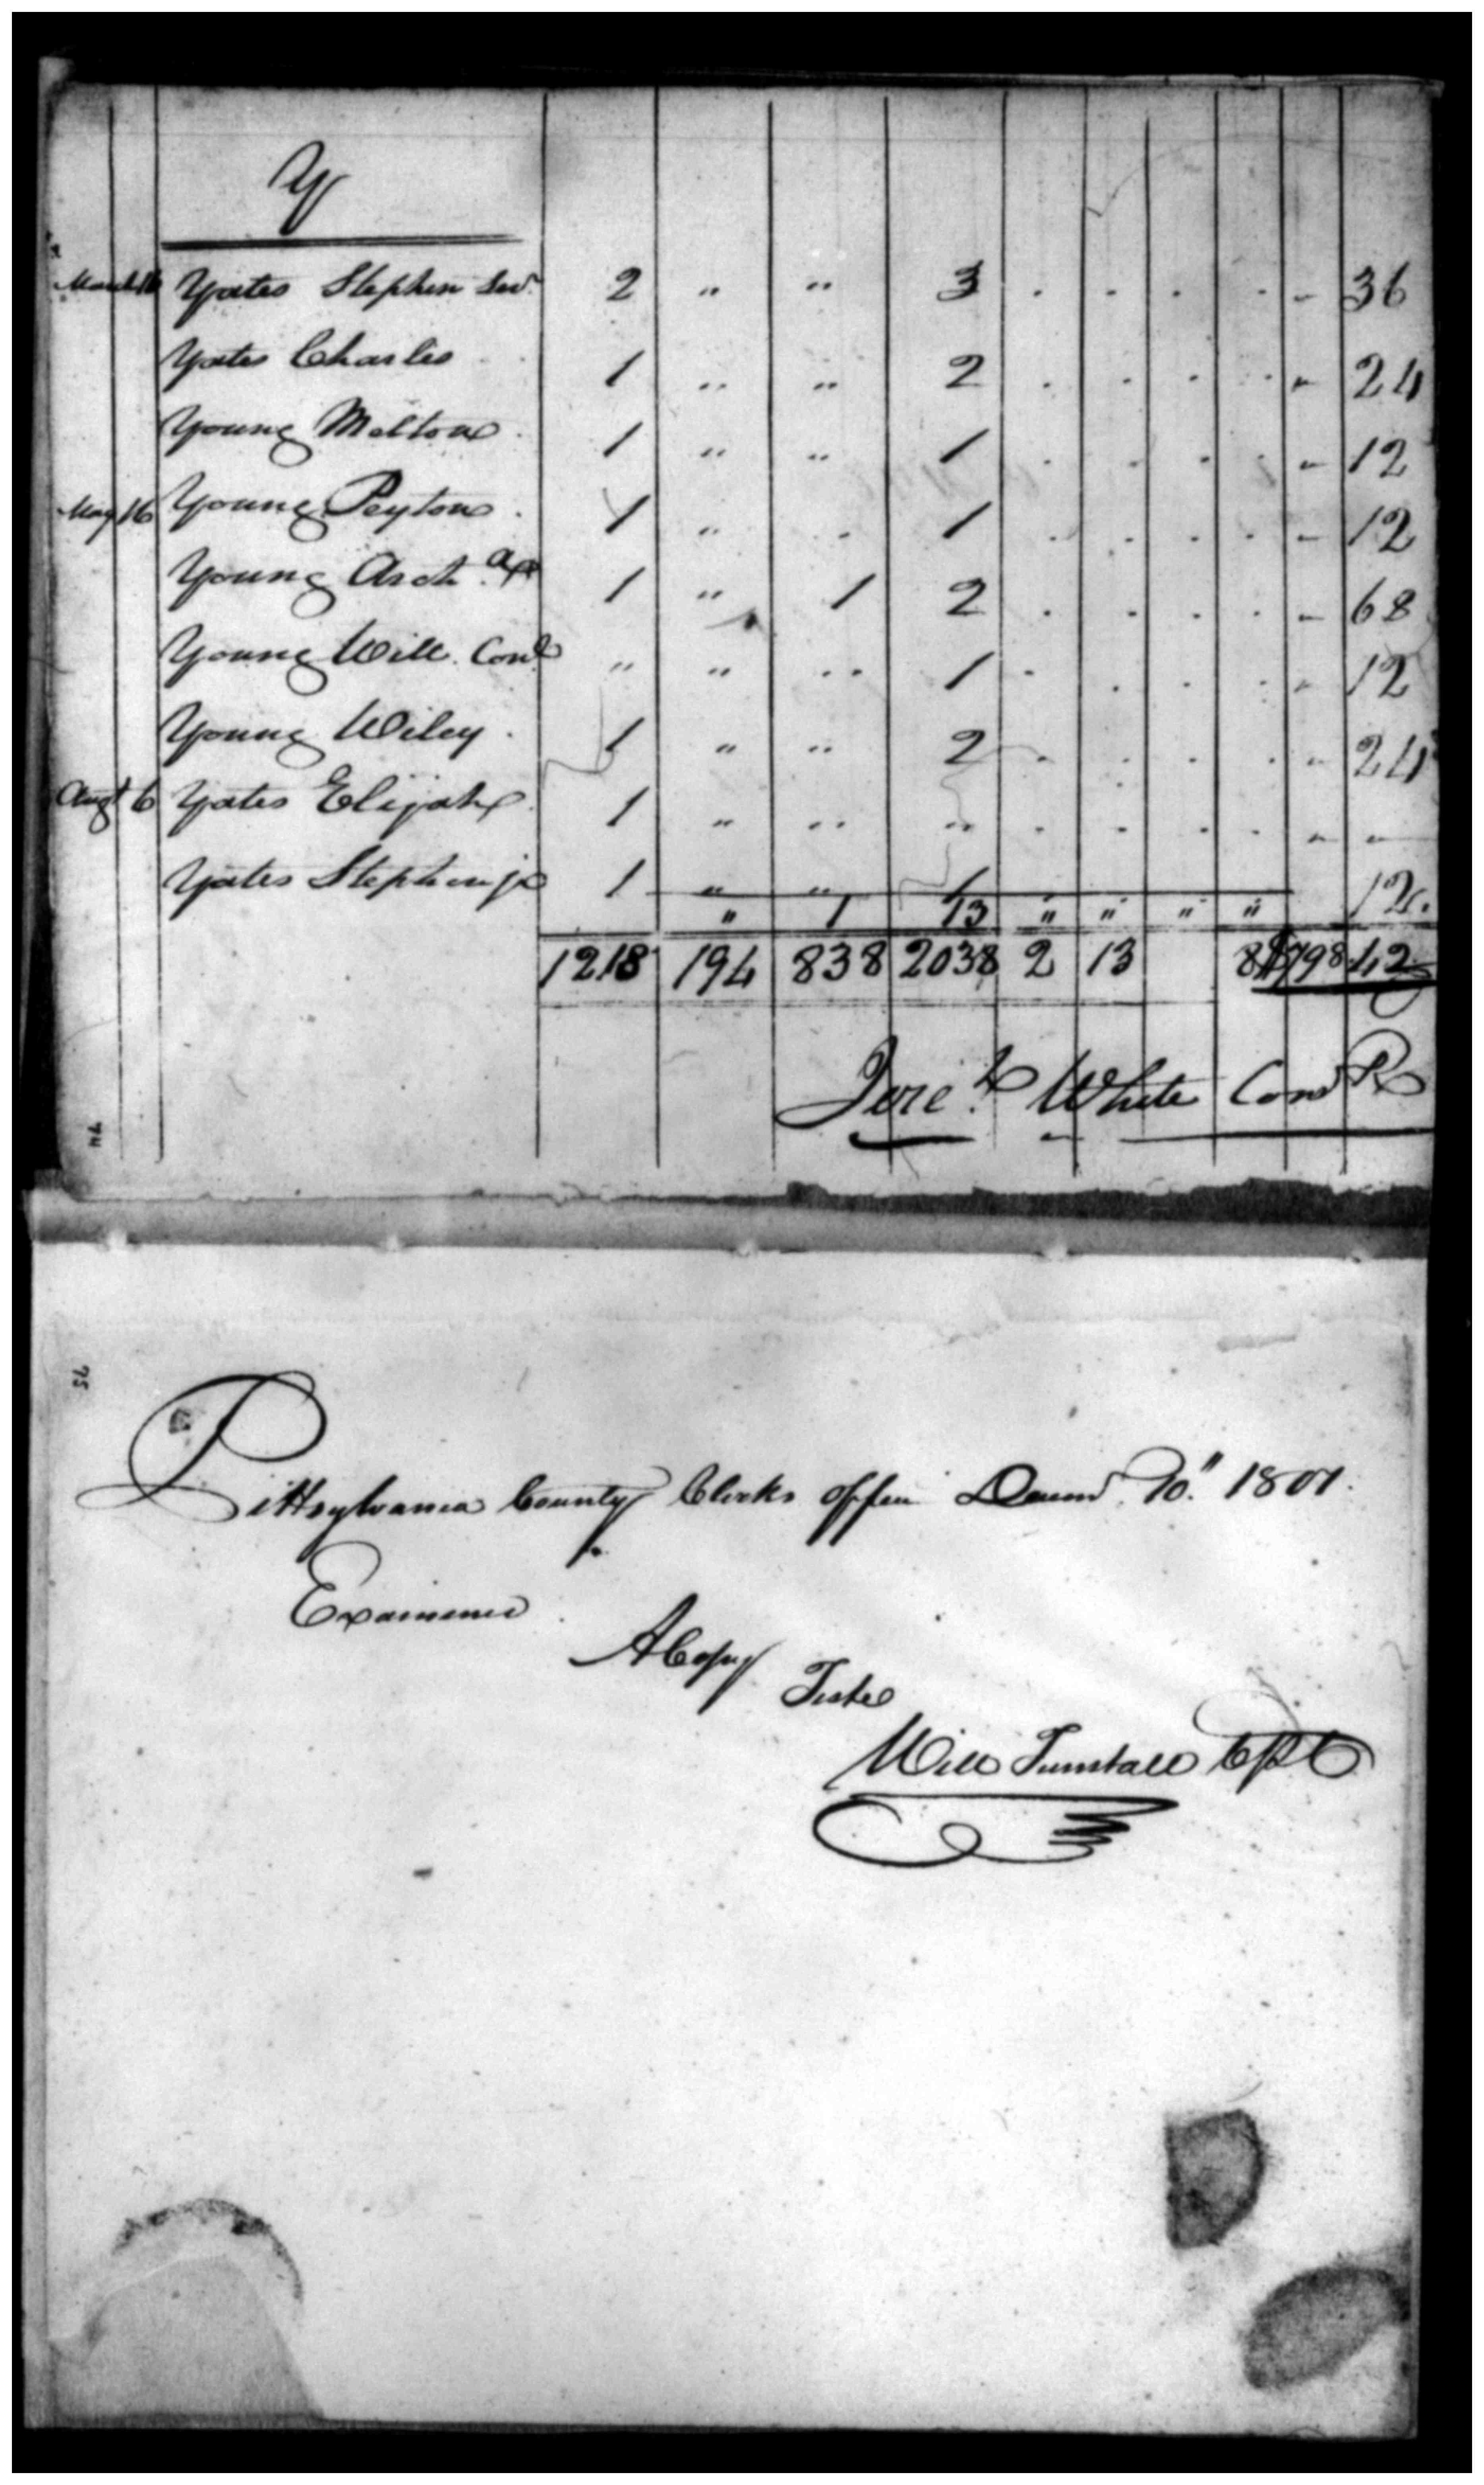 Y
March 16 Yates Stephen Senr. 2 " " 3 . . . . - 36
Yates Charles 1 " " 2 . . . . - 24
Young Melton 1 " " 1 . . . . - 12
May 16 Young Peyton 1 " . 1 . . . . - 12
Young Arch.a 1 " 1 2 . . . . - 68
Young Will. Cond " " " 1 . . . . - 12
Young Wiley 1 " " 2 . . . . - 24
Augt 6 Yates Elijah 1 " " " . . . . - -
Yates Stephen jr 1 " " 1 12.
" 1 13 " " " "
1218 194 838 2038 2 13 84 $798.42
Jere.h White Comr
74
75
Pittsylvania County Clerks office Decemr. 10." 1801.
Examined
A Copy
Teste
Will Tunstall CPC